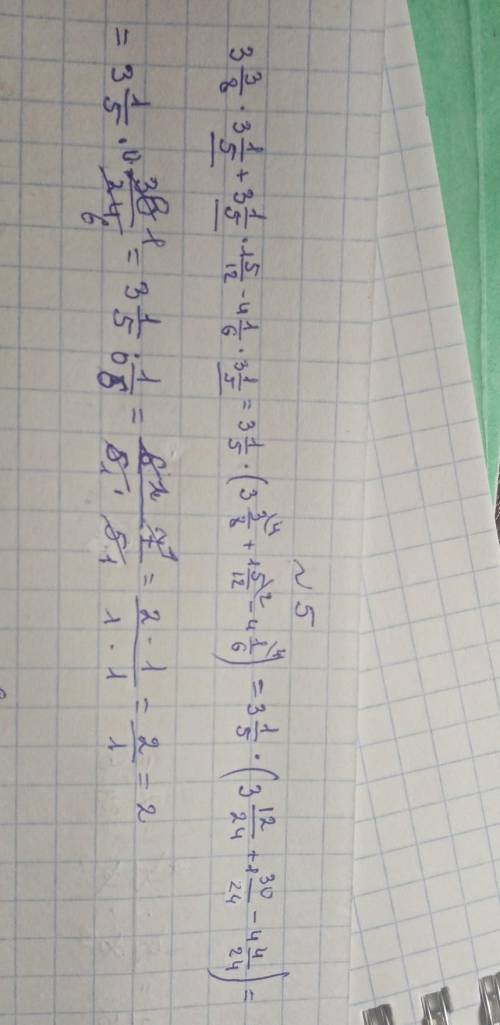 ~5
3 3/8 · 3 1/5 + 3 1/5 · 1 5/12 - 4 1/6 · 3 1/5 = 3 1/5 · (3 3/8 + 1 5/12 - 4 1/6) = 3 1/5 · (3 12/24 + 1 30/24 - 4 4/24) =
= 3 1/5 · 0 = 3 1/5 · 0 = = 2 · 1/1 · 1 = 2/1 = 2